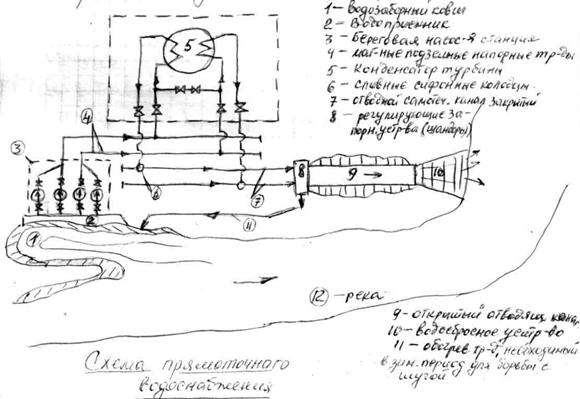 1 - водозаборный ковш
2 - Водоприемник
3 - Береговая насос-я станция
4 - маг-ные подземные напорные тр-ды
5 - Конденсатор турбины
6 - сливные сифонные колодцы
7 - отводной самотеч. канал закрытый
8 - регулирующие за-
порн. устр-ва (шандоры)
5
4
3
2
1
6
7
8
9
10
11
12 - река
9 - открытый отводящ. канал
10 - водосбросное устр-во
11 - обогрев. тр-д, необходимый
в зим. период для борьбы с
шугой
Схема прямоточного
водоснабжения